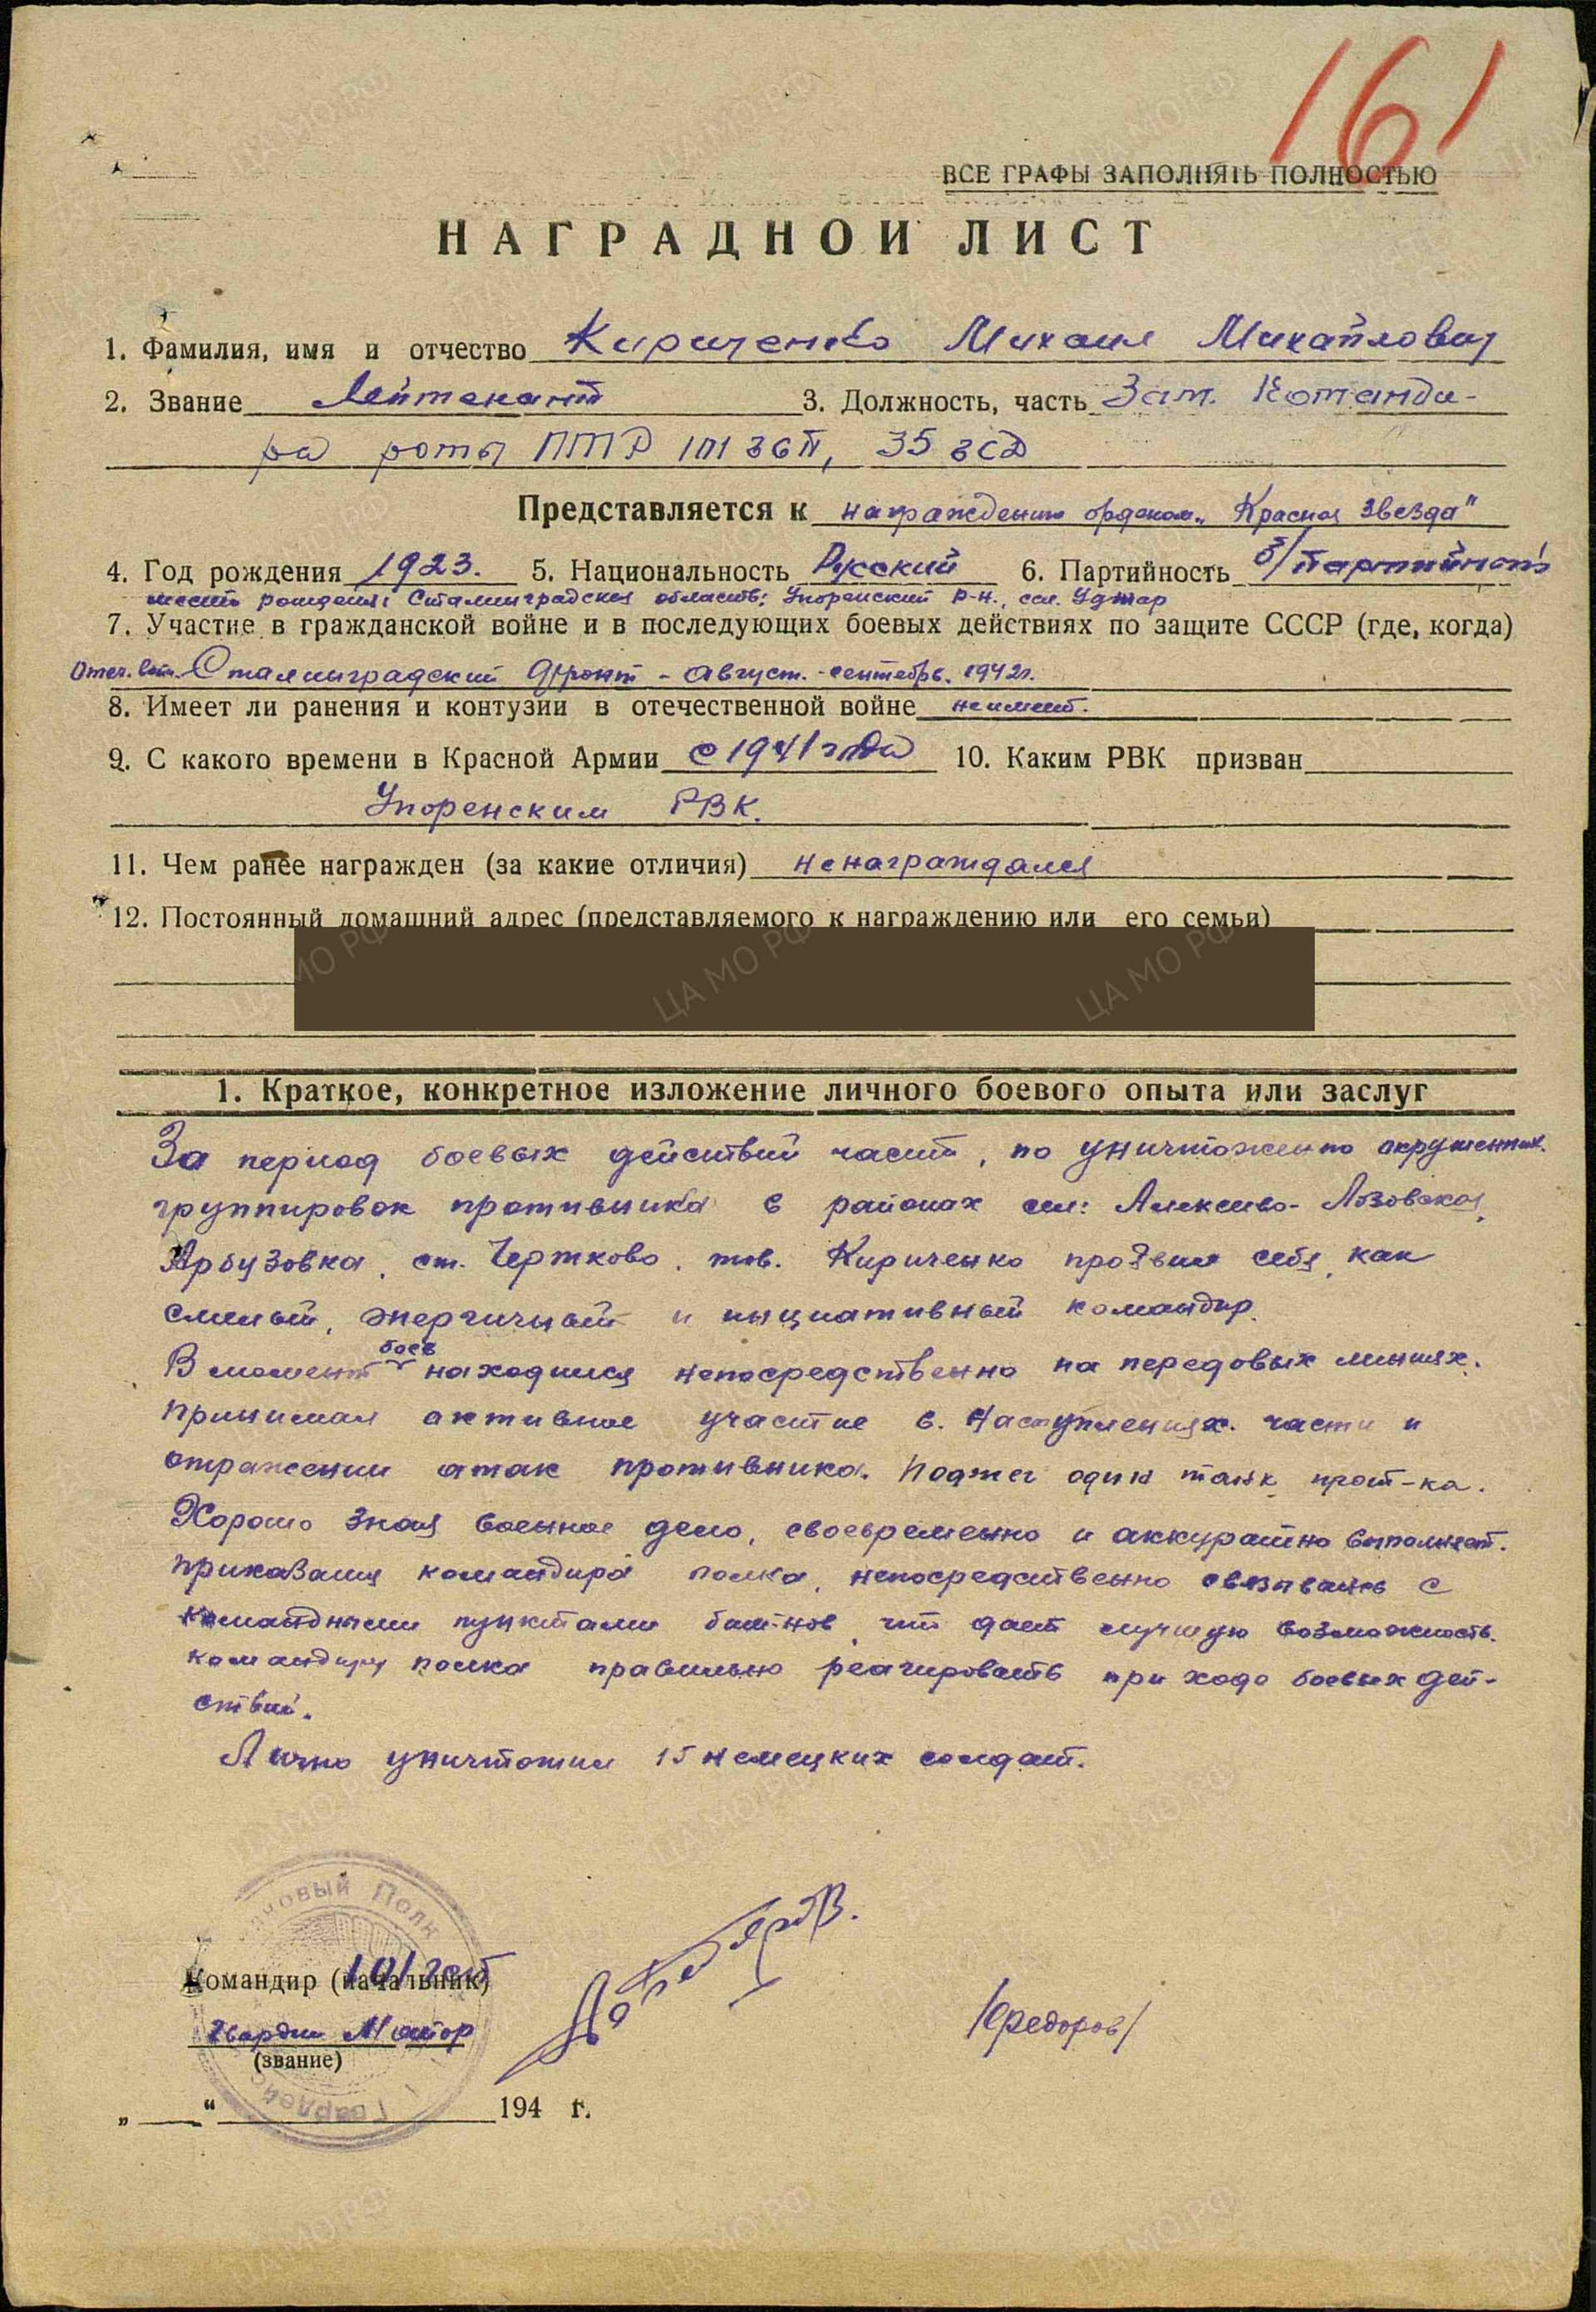 161
ВСЕ ГРАФЫ ЗАПОЛНЯТЬ ПОЛНОСТЬЮ
НАГРАДНОЙ ЛИСТ
1. Фамилия, имя и отчество Кириченко Михаил Михайлович
2. Звание Лейтенант 3. Должность, часть Зам. Команди-
ра роты ПТР 101 ГСП, 35 ГСД
Представляется к награждению орденом „Красная Звезда"
4. Год рождения 1923. 5. Национальность Русский 6. Партийность б/партийность
место рождения: Сталинградская область; Упоренский р-н., сел.
7. Участие в гражданской войне и в последующих боевых действиях по защите СССР (где, когда)
Отеч. вой. Сталинградский фронт - август. - сентябрь. 1942г.
8. Имеет ли ранения и контузии в отечественной войне не имеет.
9. С какого времени в Красной Армии с 1941 года 10. Каким РВК призван
Упоренским РВК.
11. Чем ранее награжден (за какие отличия) не награждался
12. Постоянный домашний адрес (представляемого к награждению или его семьи)
1. Краткое, конкретное изложение личного боевого опыта или заслуг
За период боевых действий части, по уничтожению окруженных
группировок противника в районах сел: Алексеево-Лозовская,
Арбузовка, ст. Чертково, тов. Кириченко проявил себя, как
смелый, энергичный и инциативный командир.
В момент боев находился непосредственно на передовых линиях.
Принимал активное участие в наступлениях части и
отражении атак противника. Поджег один танк прот-ка.
Хорошо зная военное дело, своевременно и аккуратно выполняет
приказания командира полка, непосредственно связываясь с
командными пунктами бат-нов, что дает лучшую возможность
командиру полка правильно реагировать при ходе боевых дей-
ствий.
Лично уничтожил 15 немецких солдат.
Командир (начальник) 101 гсп
Гвардии Майор
(звание)
/Федоров/
„ “ 194 г.
ЦА МО РФ